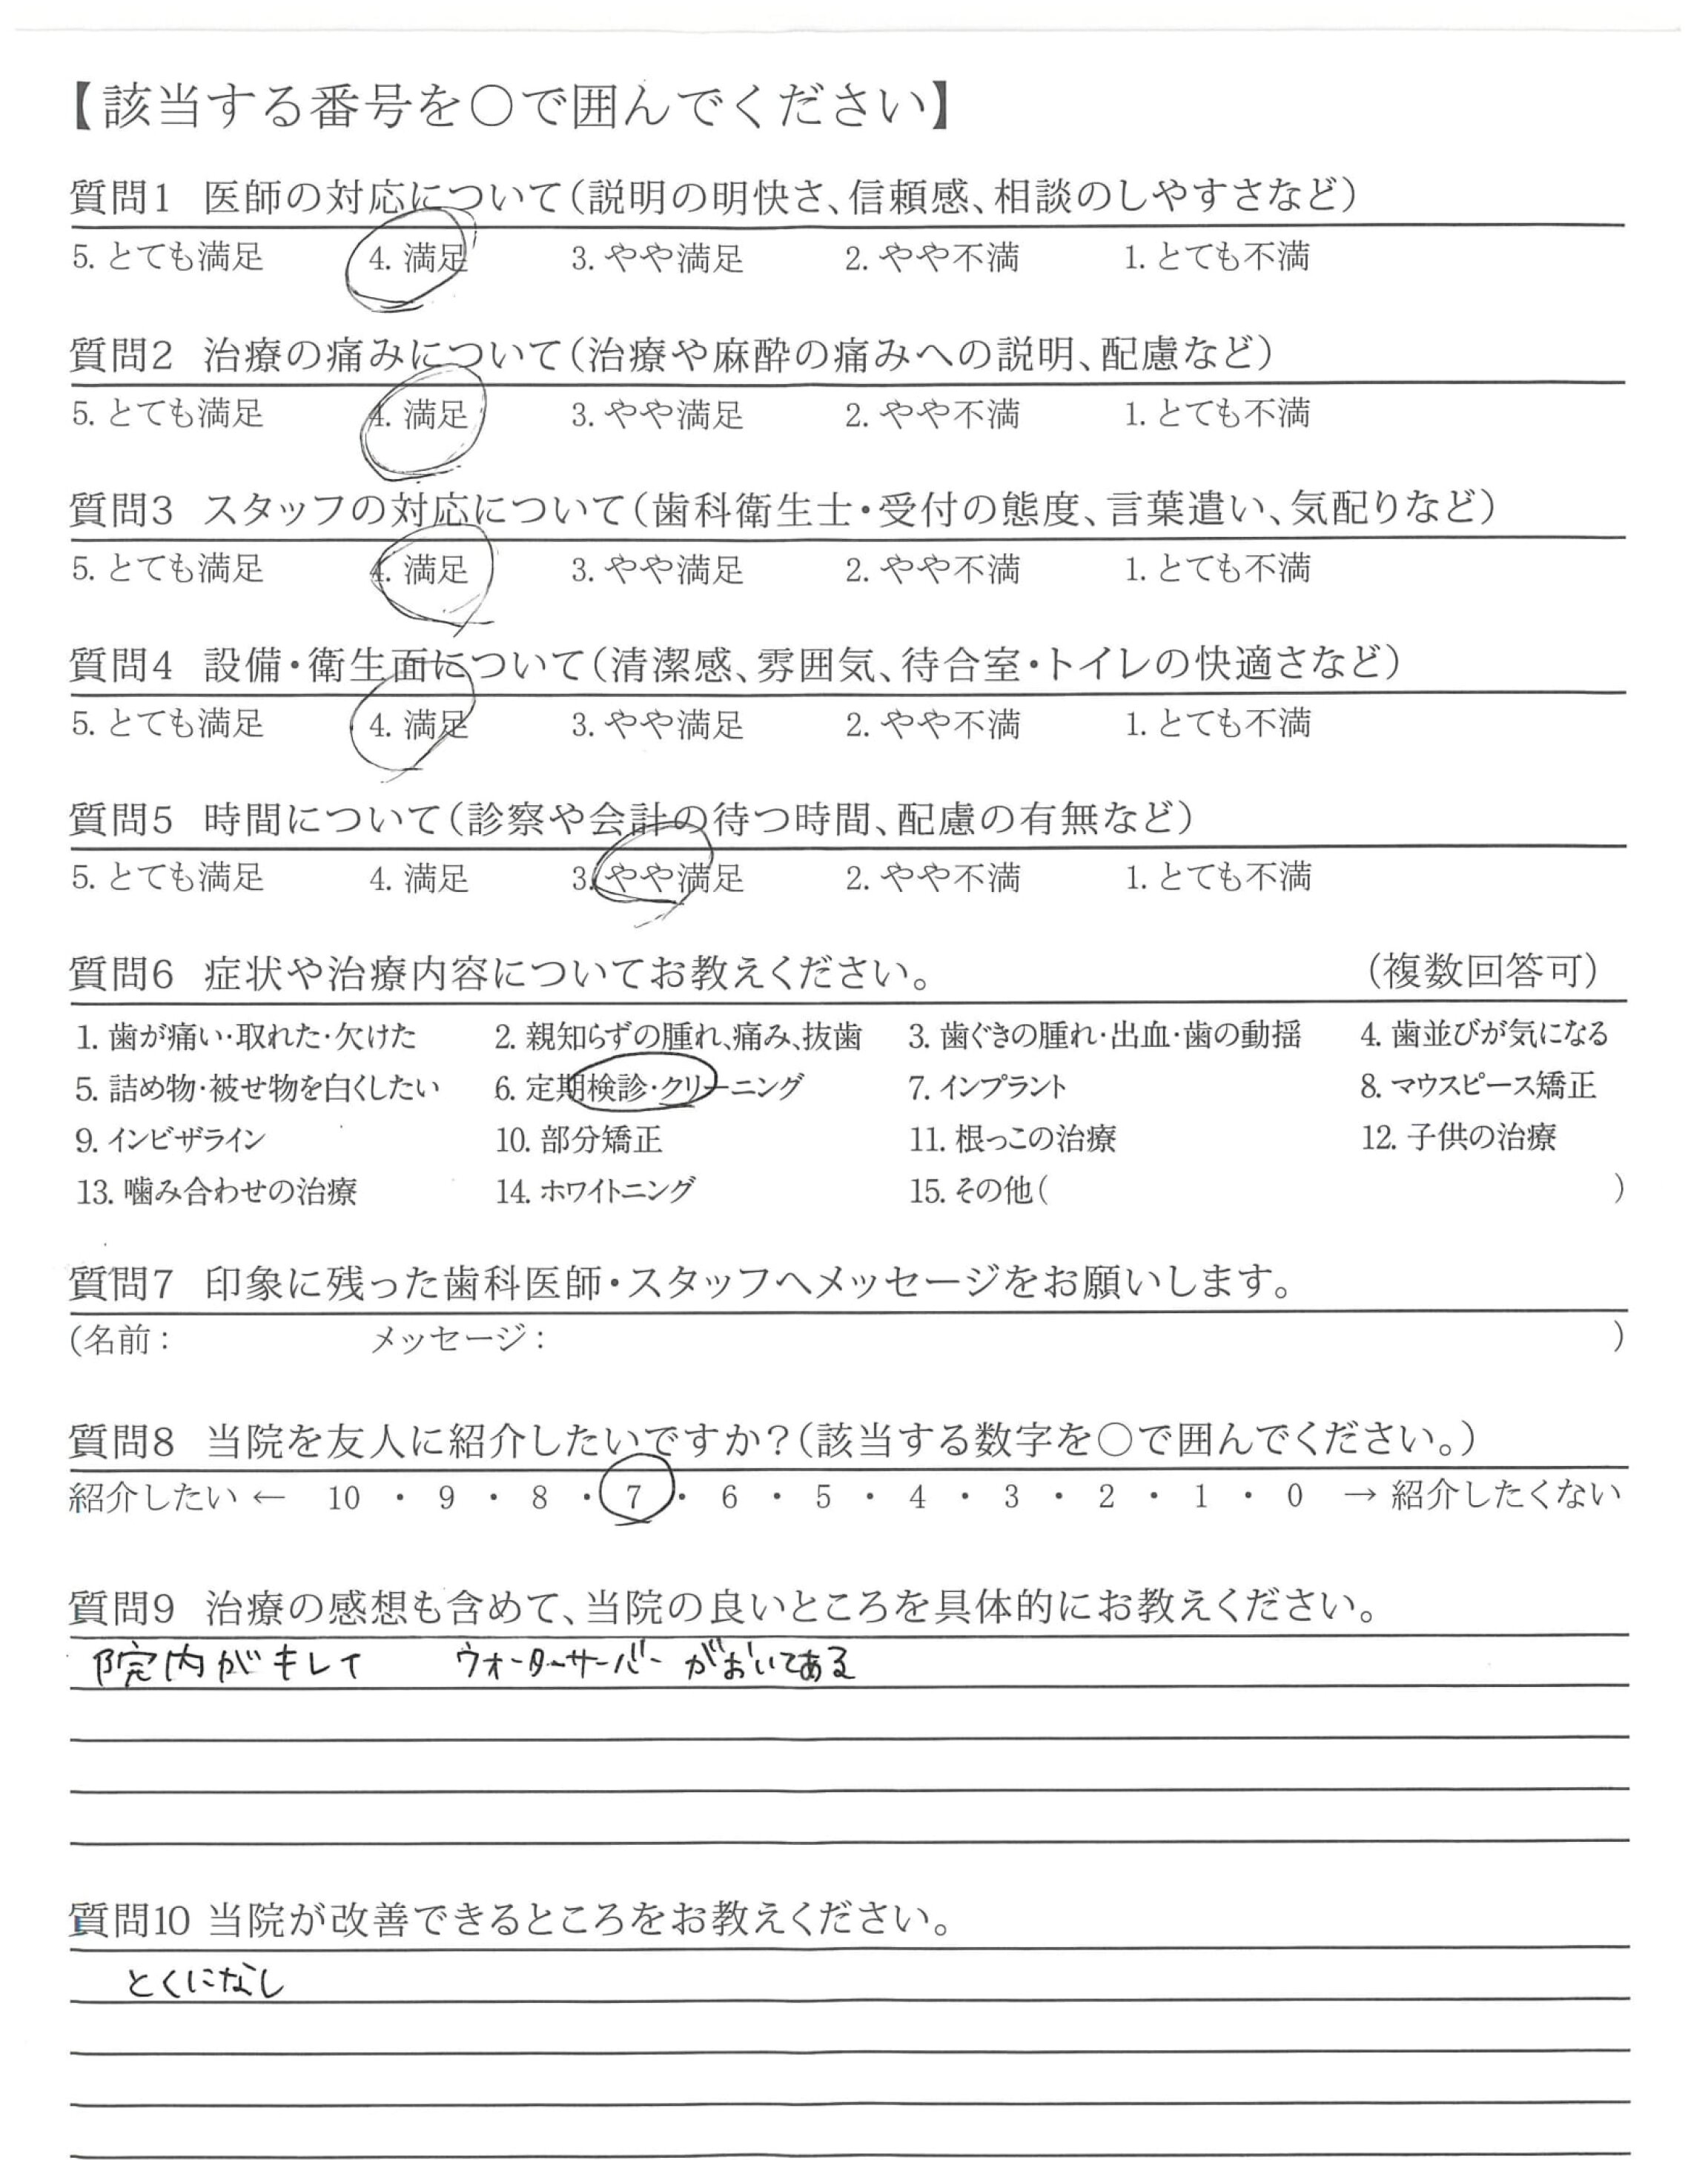 【該当する番号を○で囲んでください】
質問1 医師の対応について(説明の明快さ、信頼感、相談のしやすさなど)
5. とても満足 4. 満足 3. やや満足 2. やや不満 1. とても不満
質問2 治療の痛みについて(治療や麻酔の痛みへの説明、配慮など)
5. とても満足 4. 満足 3. やや満足 2. やや不満 1. とても不満
質問3 スタッフの対応について(歯科衛生士・受付の態度、言葉遣い、気配りなど)
5. とても満足 4. 満足 3. やや満足 2. やや不満 1. とても不満
質問4 設備・衛生面について(清潔感、雰囲気、待合室・トイレの快適さなど)
5. とても満足 4. 満足 3. やや満足 2. やや不満 1. とても不満
質問5 時間について(診察や会計の待つ時間、配慮の有無など)
5. とても満足 4. 満足 3. やや満足 2. やや不満 1. とても不満
質問6 症状や治療内容についてお教えください。 (複数回答可)
1. 歯が痛い・取れた・欠けた 2. 親知らずの腫れ、痛み、抜歯 3. 歯ぐきの腫れ・出血・歯の動揺 4. 歯並びが気になる
5. 詰め物・被せ物を白くしたい 6. 定期検診・クリーニング 7. インプラント 8. マウスピース矯正
9. インビザライン 10. 部分矯正 11. 根っこの治療 12. 子供の治療
13. 噛み合わせの治療 14. ホワイトニング 15. その他( )
質問7 印象に残った歯科医師・スタッフへメッセージをお願いします。
(名前: メッセージ: )
質問8 当院を友人に紹介したいですか?(該当する数字を○で囲んでください。)
紹介したい ← 10 ・ 9 ・ 8 ・ 7 ・ 6 ・ 5 ・ 4 ・ 3 ・ 2 ・ 1 ・ 0 → 紹介したくない
質問9 治療の感想も含めて、当院の良いところを具体的にお教えください。
院内がキレイ ウォーターサーバーがおいてある
質問10 当院が改善できるところをお教えください。
とくになし